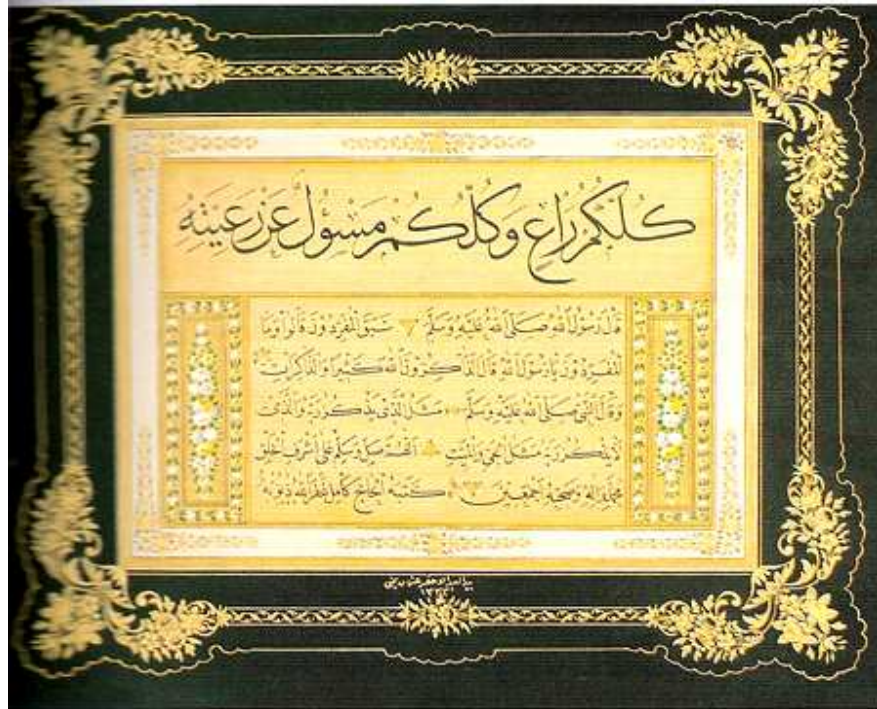 كُلُّكُمْ رَاعٍ وَكُلُّكُمْ مَسْؤُلٌ عَنْ رَعِيَّتِهِ
قال رسول الله صلى الله عليه وسلم سبق المفردون قالوا وما
المفردون يا رسول الله قال الذاكرون الله كثيرا والذاكرات
وقال النبي صلى الله عليه وسلم مثل الذي يذكر ربه والذي
لا يذكر ربه مثل الحي والميت اللهم صل وسلم على اشرف الخلق
محمد واله وصحبه اجمعين كتبه الحاج كامل غفر الله ذنوبه